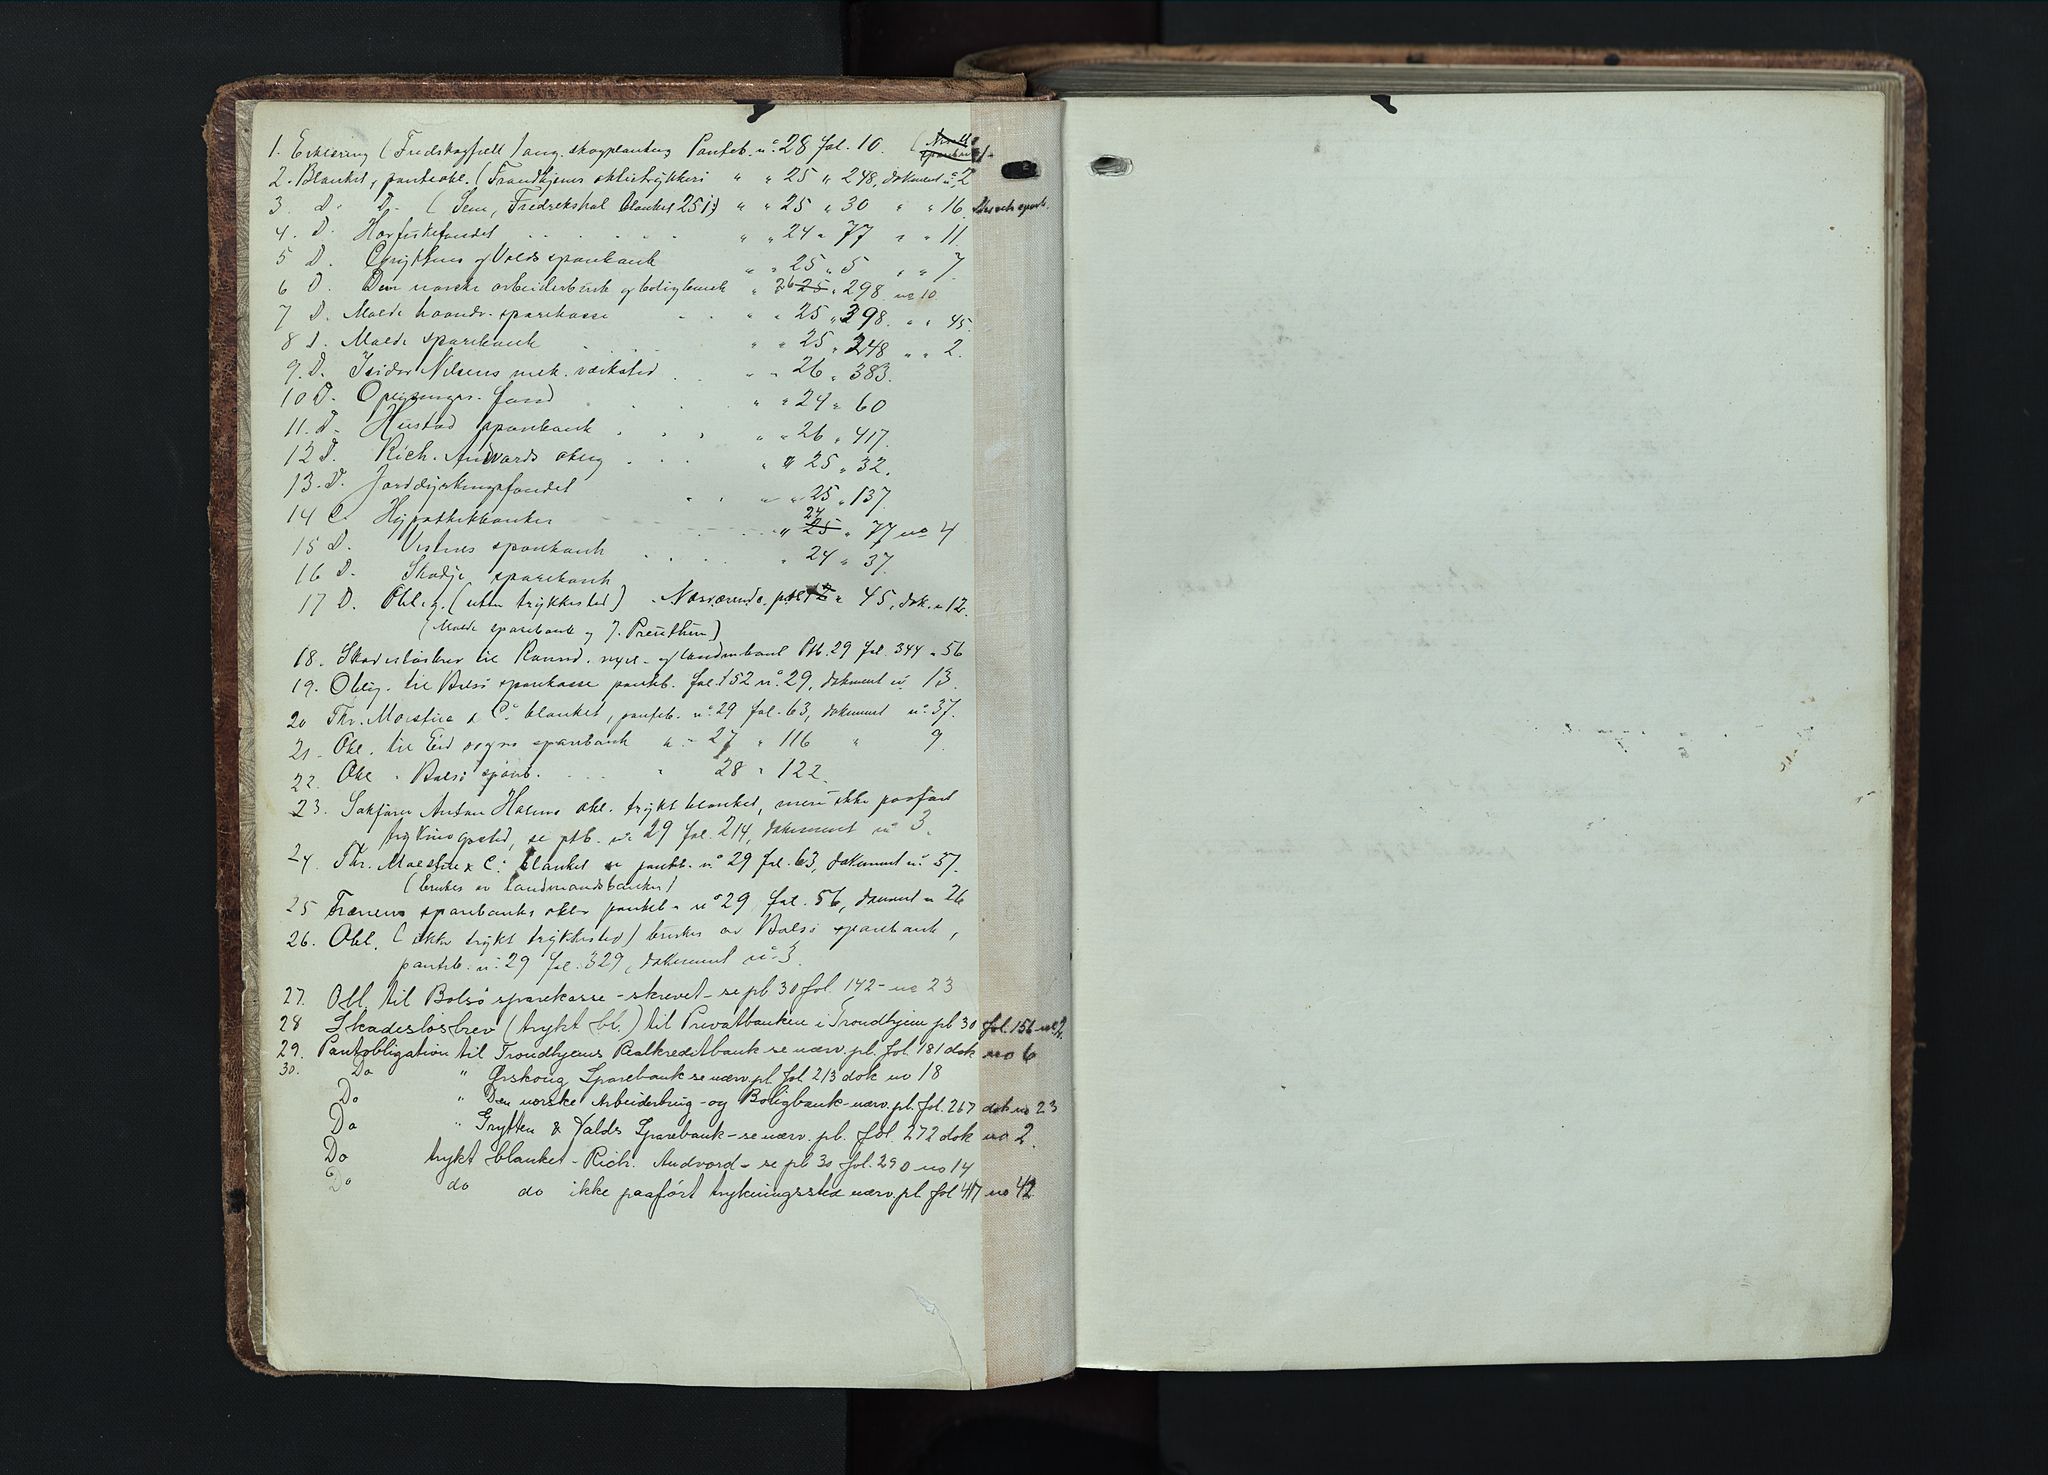 1. Erklæring (Fredskogfelt) ang. skogplanting Panteb. no 28 fol. 10.
2. Blanket, panteobl. (Trondhjems aktietrykkeri " " 25 " 248, dokument no 2
3. D. D. (Sem, Fredrekshal blanket 251) " " 25 " 30 " " 16
4. D. Havfiskefondet " " 24 " 77 " " 11.
5 D. Gryttens og Volds sparebank " " 25 " 5 " " 7
6 D. Den norske arbeiderbruk og boligbank " " 26 25 " 298 no 10
7 D. Molde haandv. sparekasse " " 25 " 398 " " 45.
8 D. Molde sparebank " " 25 " 248 " " 2.
9. D. Isidor Nilsens mek. værksted " " 26 " 383.
10 D. fond " " 24 " 60
11. D. Hustad sparebank " " 26 " 417.
12 D. Rich. Andvords oblig " " 25 " 32.
13. D. Jorddyrkningsfondet " " 25 " 137.
14 C. Hypothekbanken " 24 25 " 77 no 4
15 D. Vestnes sparebank " 24 " 37.
16 D. Skodje sparebank
17 D. Oblig. (uten trykkested) Nærværende 45, dok. " 12.
(Molde sparebank og J. Preuthun)
18. Skadesløsbrev til Romsd. og landmbank Ptb. 29 fol. 344 " 56
19. Oblig. til Bolsø sparekasse panteb. fol. 152 no 29, dokument no 13.
20 Thr. Moestue & Co blanket, panteb. no 29 fol. 63, dokument no 37.
21. Obl. til Eid sogns sparebank " " 27 " 116 " 9.
22. Obl " Bolsø spareb. " 28 " 122.
23. Sakfører Anton Holms obl. trykt blanket, men ikke paaført
trykningssted, se ptb. no 29 fol. 214, dokument no 3.
24. Thr. Moestue & Co blanket se panteb. no 29 fol. 63, dokument no 37.
(brukes av Landmandsbanken)
25 Frænens sparebanks obl. panteb. no 29 fol. 56, dokument " 26
26. Obl. (ikke trykt trykkested) brukes av Bolsø sparebank,
panteb. no 29 fol. 329, dokument no 3.
27. Obl. til Bolsø sparekasse - skrevet - se pb 30 fol. 142 - no 23
28 Skadesløsbrev (trykt bl.) til Privatbanken i Trondhjem pb 30 fol. 156
29. Pantobligation til Trondhjems Realkreditbank se nærv. pb. fol. 181 dok no 6
30. Do " Ørskoug Sparebank se nærv. pb fol. 213 dok no 18
Do " Den norske Arbeiderbrug- og Boligbank - nærv. pb. fol. 267 dok no 23
Do " Grytten & Volds Sparebank - se nærv. pb. fol. 272 dok no 2.
Do trykt blanket - Rich. Andvord - se pb 30 fol. 290 no 14
Do do do ikke paaført trykningssted nærv. pb. fol 417 no 42